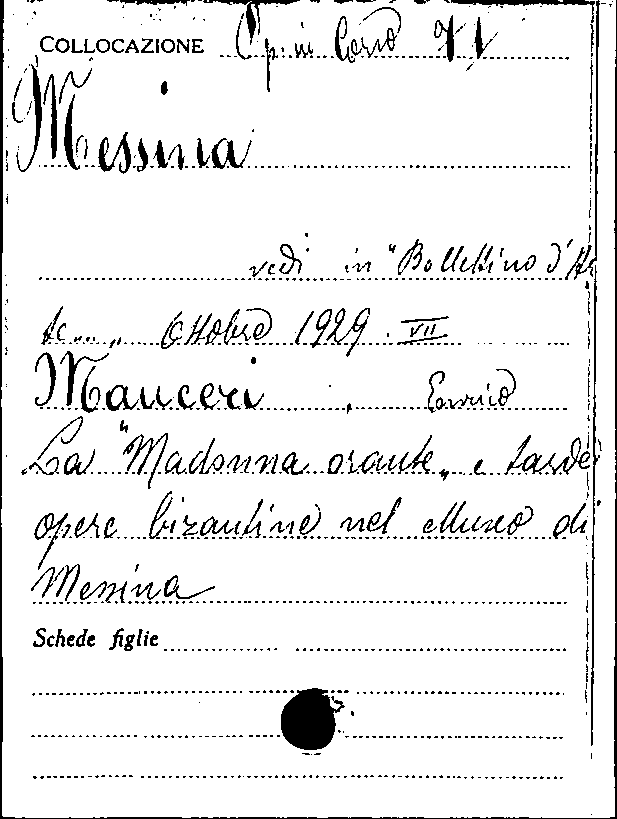 COLLOCAZIONE Op. in Corso
Messina
vedi in "Bollettino d'Ar
te" Ottobre 1929. VII
Mauceri, Enrico
La "Madonna orante" e tarde
opere bizantine nel Museo di
Messina
Schede figlie